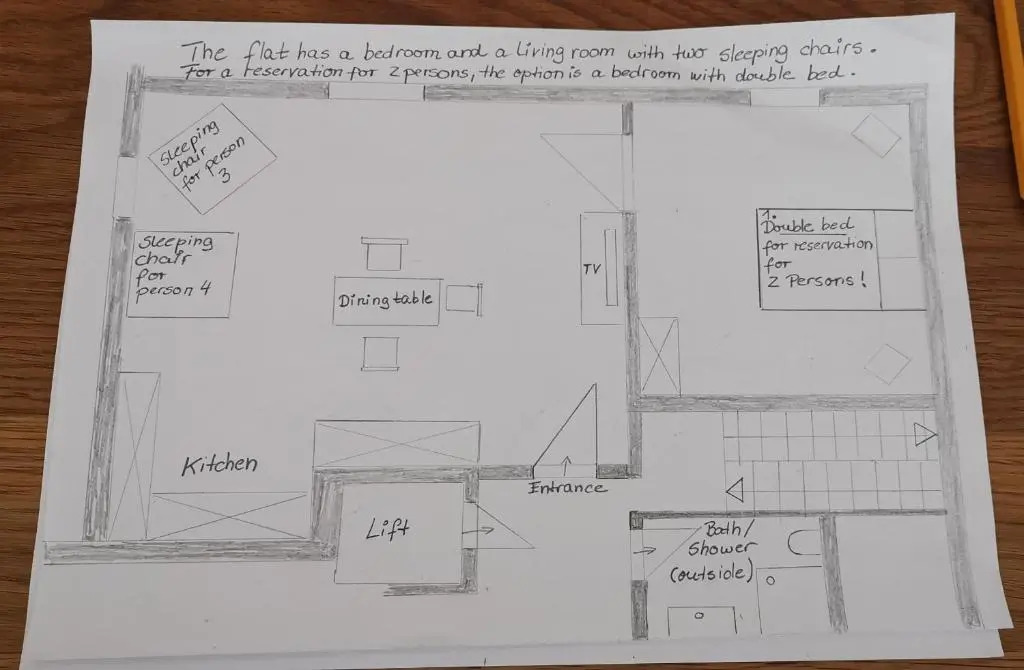 The flat has a bedroom and a living room with two sleeping chairs.
For a reservation for 2 persons, the option is a bedroom with double bed.
Sleeping
chair
for person
3
Sleeping
chair
for
person 4
Dining table
TV
1.
Double bed
for reservation
for
2 Persons!
Kitchen
Entrance
Lift
Bath/
Shower
(outside)